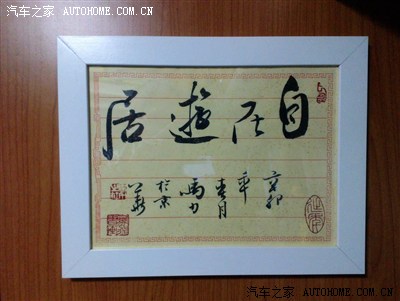 汽车之家 AUTOHOME.COM.CN
自在遊居
辛卯
年
春月
馬力
於京
华
汽车之家 AUTOHOME.COM.CN